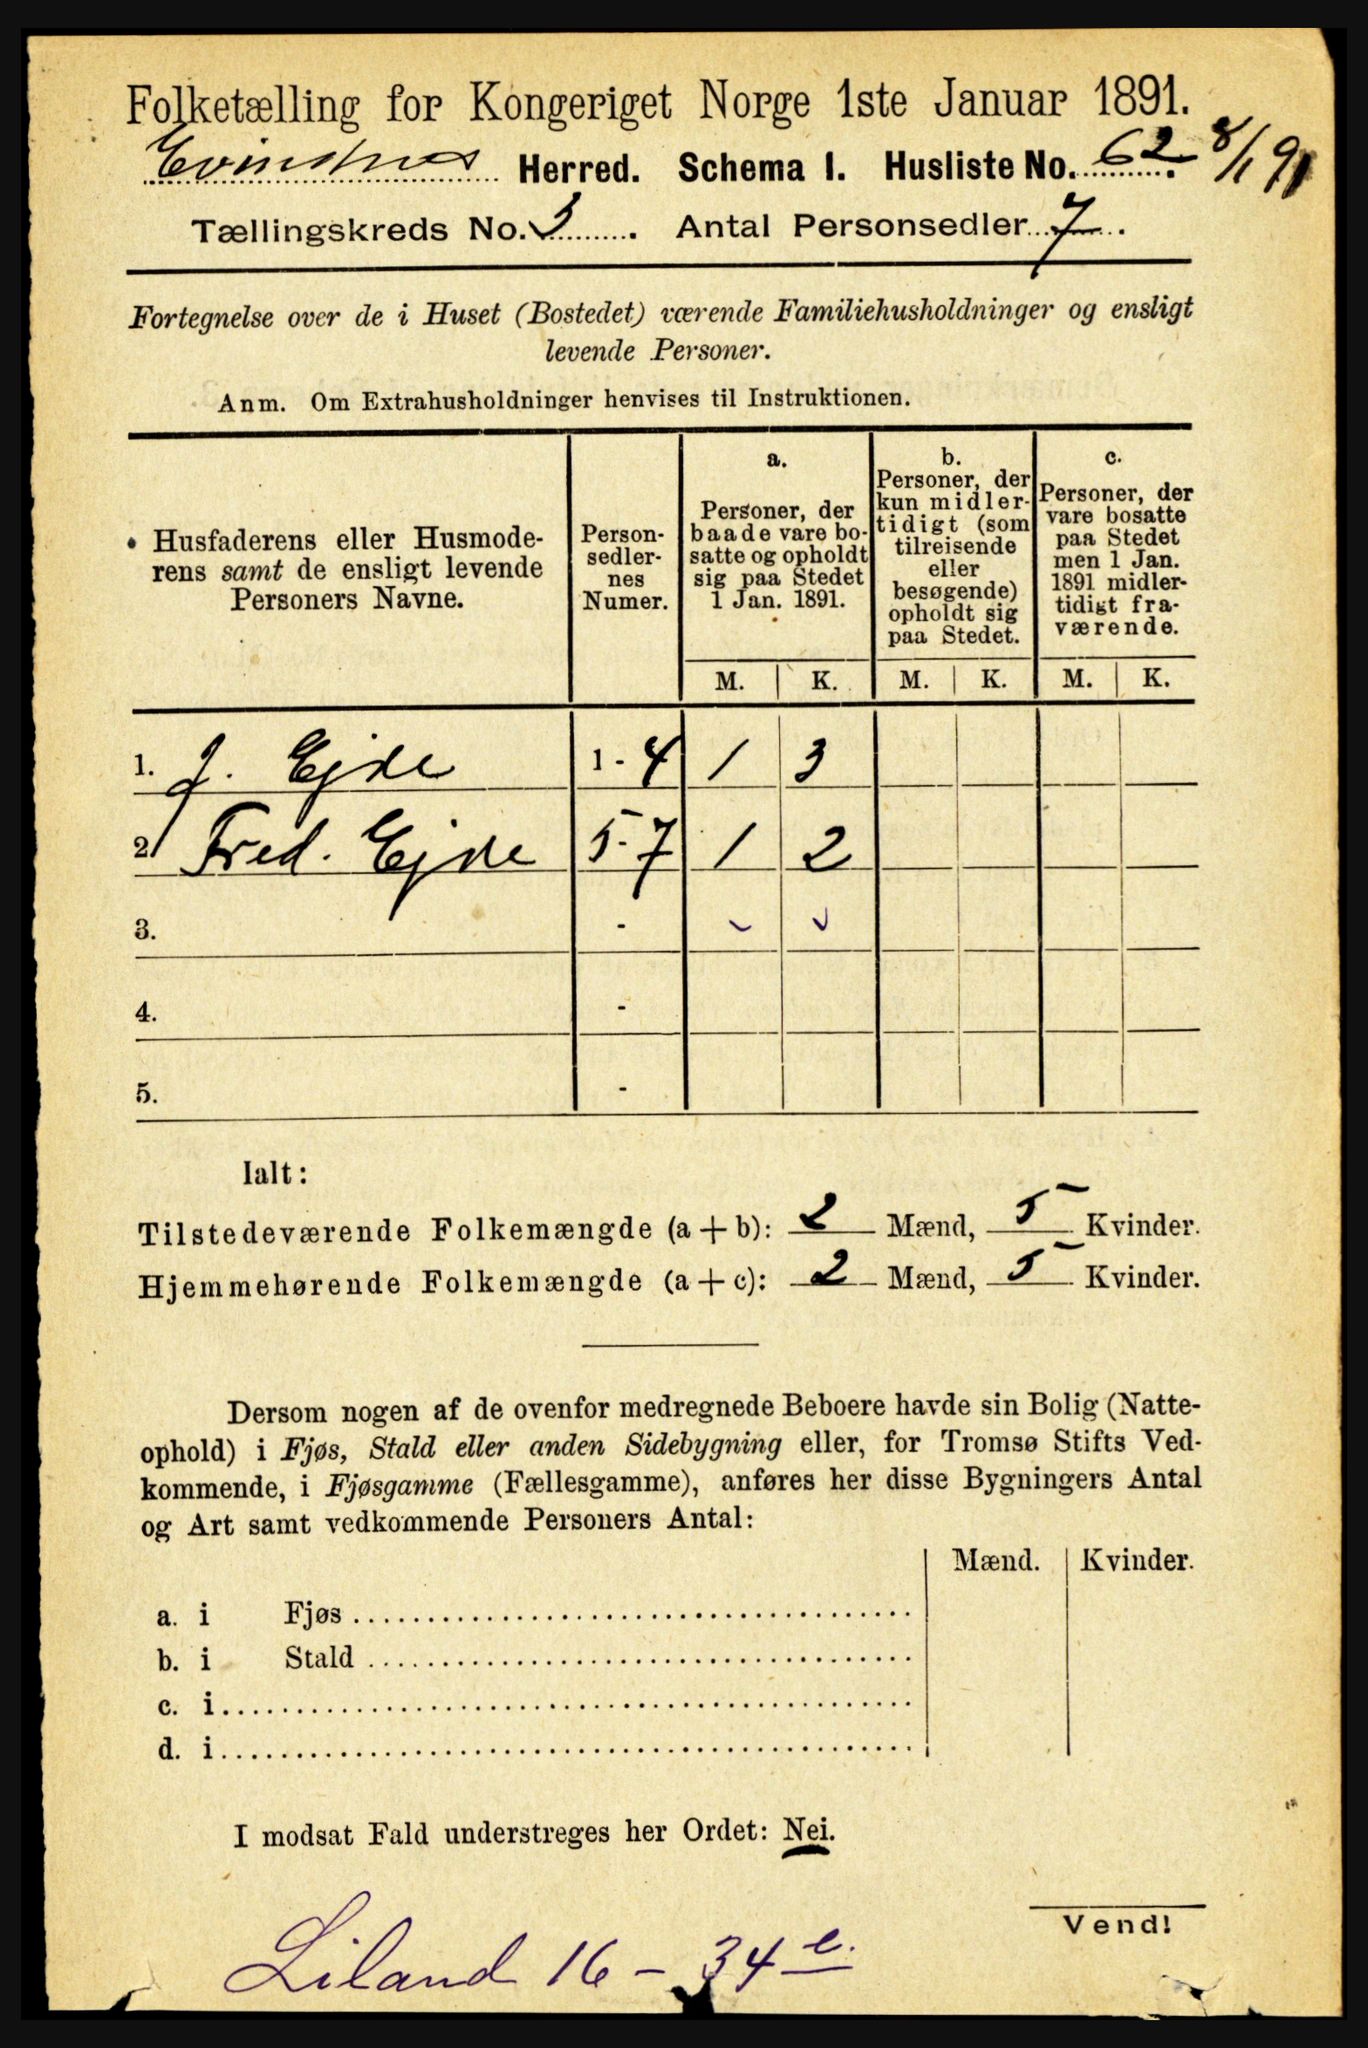 Folketælling for Kongeriget Norge 1ste Januar 1891.
Evindnes Herred. Schema I. Husliste No. 62. 8/1 91
Tællingskreds No. 3. Antal Personsedler 7.
Fortegnelse over de i Huset (Bostedet) værende Familiehusholdninger og ensligt
levende Personer.
Anm. Om Extrahusholdninger henvises til Instruktionen.
Husfaderens eller Husmode-
rens samt de ensligt levende
Personers Navne.
Person-
sedler-
nes
Numer.
a.
Personer, der
baade vare bo-
satte og opholdt
sig paa Stedet
1 Jan. 1891.
b.
Personer, der
kun midler-
tidigt (som
tilreisende
eller
besøgende)
opholdt sig
paa Stedet.
c.
Personer, der
vare bosatte
paa Stedet
men 1 Jan.
1891 midler-
tidigt fra-
værende.
M. K. M. K. M. K.
1. J. Ejde 1-4 1 3
2. Fred. Ejde 5-7 1 2
3. -
4. -
5. -
Ialt:
Tilstedeværende Folkemængde (a + b): 2 Mænd, 5 Kvinder.
Hjemmehørende Folkemængde (a + c): 2 Mænd, 5 Kvinder.
Dersom nogen af de ovenfor medregnede Beboere havde sin Bolig (Natte-
ophold) i Fjøs, Stald eller anden Sidebygning eller, for Tromsø Stifts Ved-
kommende, i Fjøsgamme (Fællesgamme), anføres her disse Bygningers Antal
og Art samt vedkommende Personers Antal:
Mænd. Kvinder.
a. i Fjøs
b. i Stald
c. i
d. i
I modsat Fald understreges her Ordet: Nei.
Vend!
Liland 16 - 34 e.